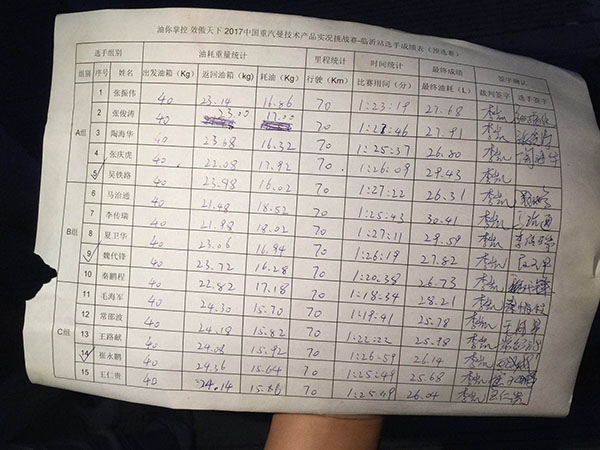 油你掌控 效傲天下 2017中国重汽曼技术产品实况挑战赛-临沂站选手成绩表（预选赛）
选手组别 油耗重量统计 里程统计 时间统计 最终成绩 签字确认
组别 序号 姓名 出发油箱（Kg） 返回油箱（Kg） 耗油（Kg） 行驶（Km） 比赛用时（分） 最终油耗（L） 裁判签字 选手签字
1 张振伟 40 23.14 16.86 70 1:23:19 27.68
2 张俊涛 40 23.00 17.00 70 1:27:46 27.91
A组 3 陶海华 40 23.68 16.32 70 1:25:37 26.80
4 张庆虎 40 22.08 17.92 70 1:26:09 29.43
5 吴铁路 40 23.98 16.02 70 1:27:22 26.31
6 马治通 40 21.48 18.52 70 1:25:43 30.41
7 李传瑞 40 21.98 18.02 70 1:27:11 29.59
B组 8 夏卫华 40 23.06 16.94 70 1:26:19 27.82
9 魏代锋 40 23.72 16.28 70 1:20:38 26.73
10 秦鹏程 40 22.82 17.18 70 1:18:34 28.21
11 毛海军 40 24.30 15.70 70 1:19:41 25.78
12 常邵波 40 24.18 15.82 70 1:22:22
C组 13 王路献 40 24.08 15.92 70 1:26:59 26.14
14 崔永鹏 40 24.36 15.64 70 1:25:49 25.68
15 王仁贵 40 24.14 15.86 70 1:25:49 26.04